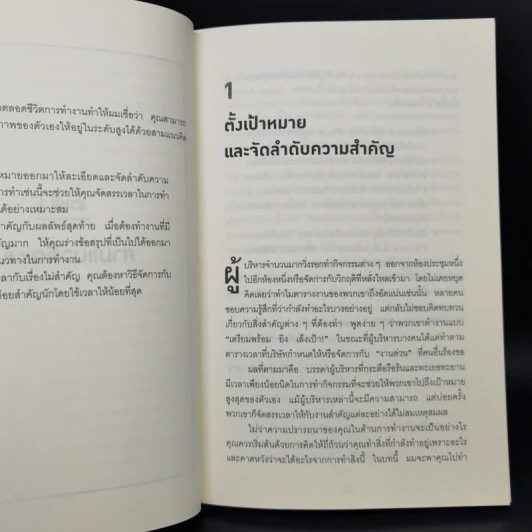 ตลอดชีวิตการทำงานทำให้ผมเชื่อว่า คุณสามารถ
ภาพของตัวเองให้อยู่ในระดับสูงได้ด้วยสามแนวคิด
หมายออกมาให้ละเอียดและจัดลำดับความ
การทำเช่นนี้จะช่วยให้คุณจัดสรรเวลาในการทำ
ได้อย่างเหมาะสม
สำคัญกับผลลัพธ์สุดท้าย เมื่อต้องทำงานที่มี
คัญมาก ให้คุณร่างข้อสรุปที่เป็นไปได้ออกมา
นวทางในการทำงาน
ลากับเรื่องไม่สำคัญ คุณต้องหาวิธีจัดการกับ
อยสำคัญนักโดยใช้เวลาให้น้อยที่สุด
1
ตั้งเป้าหมาย
และจัดลำดับความสำคัญ
ผู้บริหารจำนวนมากวิ่งรอกทำกิจกรรมต่าง ๆ ออกจากห้องประชุมหนึ่ง
ไปอีกห้องหนึ่งหรือจัดการกับวิกฤติที่หลั่งไหลเข้ามา โดยไม่เคยหยุด
คิดเลยว่าทำไมตารางงานของพวกเขาถึงอัดแน่นเช่นนั้น หลายคน
ชอบความรู้สึกที่ว่ากำลังทำอะไรบางอย่างอยู่ แต่กลับไม่ชอบคิดทบทวน
เกี่ยวกับสิ่งสำคัญต่าง ๆ ที่ต้องทำ พูดง่าย ๆ ว่าพวกเขาทำงานแบบ
“เตรียมพร้อม ยิง เล็งเป้า!” ในขณะที่ผู้บริหารบางคนได้แต่ทำตาม
ตารางเวลาที่บริษัทกำหนดให้หรือจัดการกับ “งานด่วน” ที่คนอื่นร้องขอ
ผลที่ตามมาคือ บรรดาผู้บริหารที่กระตือรือร้นและทะเยอทะยาน
มีเวลาเพียงน้อยนิดในการทำกิจกรรมที่จะช่วยให้พวกเขาไปถึงเป้าหมาย
สูงสุดของตัวเอง แม้ผู้บริหารเหล่านี้จะมีความสามารถ แต่บ่อยครั้ง
พวกเขาก็จัดสรรเวลาให้กับงานสำคัญแต่ละอย่างได้ไม่สมเหตุสมผล
ไม่ว่าความปรารถนาของคุณในด้านการทำงานจะเป็นอย่างไร
คุณควรเริ่มต้นด้วยการคิดให้ถี่ถ้วนว่าคุณทำสิ่งที่กำลังทำอยู่เพราะอะไร
และคาดหวังว่าจะได้อะไรจากการทำสิ่งนี้ ในบทนี้ ผมจะพาคุณไปทำ